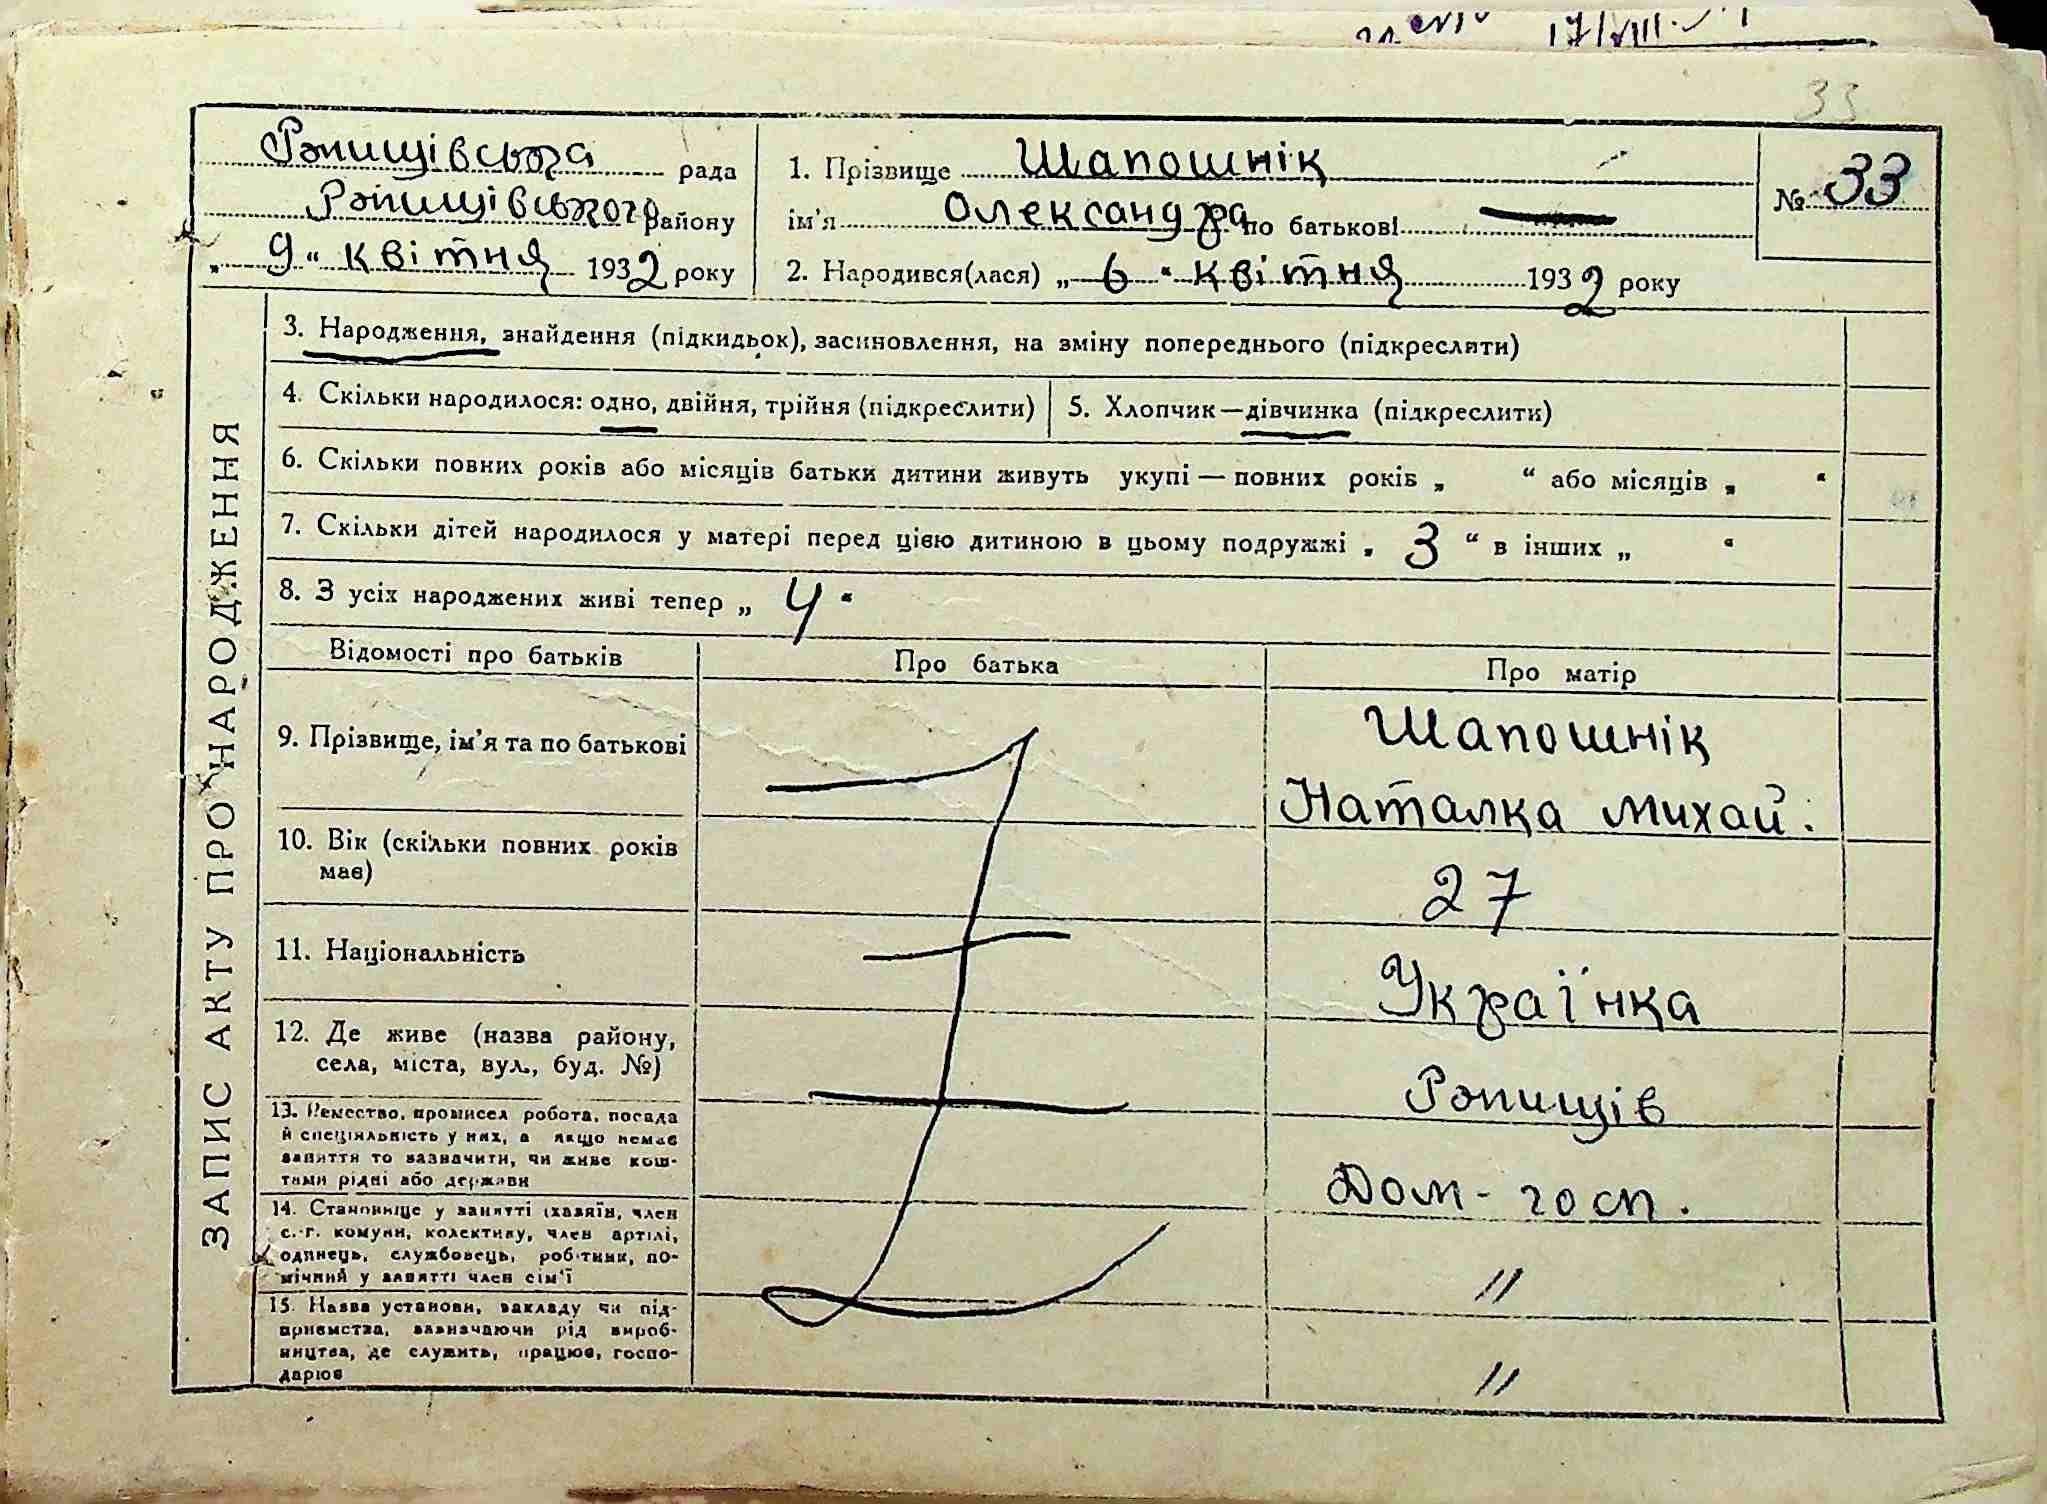 17/VIII
33
Рэпищівська рада
Рэпищівського району
„ 9 “ квітня 1932 року
1. Прізвище Шапошнік
ім'я Олександра по батькові —
2. Народився(лася) „ 6 “ квітня 1932 року
№ 33
ЗАПИС АКТУ ПРО НАРОДЖЕННЯ
3. Народження, знайдення (підкидьок), засиновлення, на зміну попереднього (підкреслити)
4. Скільки народилося: одно, двійня, трійня (підкреслити)
5. Хлопчик—дівчинка (підкреслити)
6. Скільки повних років або місяців батьки дитини живуть укупі — повних років „ “ або місяців „ “
7. Скільки дітей народилося у матері перед цією дитиною в цьому подружжі „ 3 “ в інших „ “
8. З усіх народжених живі тепер „ 4 “
Відомості про батьків
Про батька
Про матір
9. Прізвище, ім'я та по батькові
Шапошнік
Наталка Михай.
10. Вік (скільки повних років
має)
27
11. Національність
Українка
12. Де живе (назва району,
села, міста, вул., буд. №)
Рэпищів
13. Ремество, промисел робота, посада
й спеціяльність у них, а якщо немає
заняття то зазначити, чи живе кош-
тами рідні або держави
Дом - госп.
14. Становище у занятті (хазяїн, член
с.-г. комуни, колективу, член артілі,
одинець, службовець, робітник, по-
мічний у занятті член сім'ї
"
15. Назва установи, закладу чи під-
приємства, зазначаючи рід вироб-
ництва, де служить, працює, госпо-
дарює
"